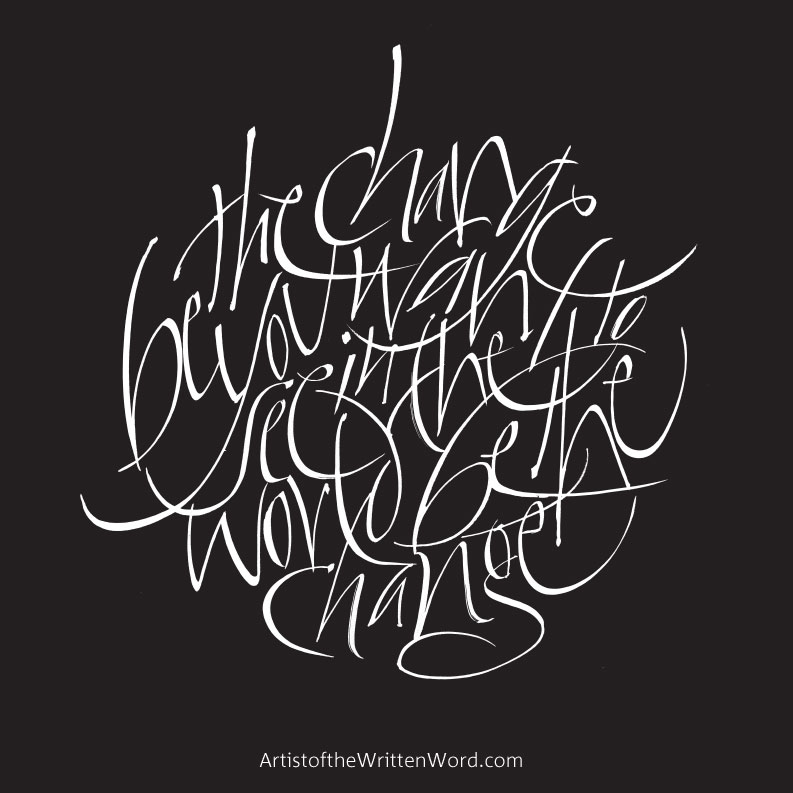 be the change
you want to
see in the
world be the
change
ArtistoftheWrittenWord.com